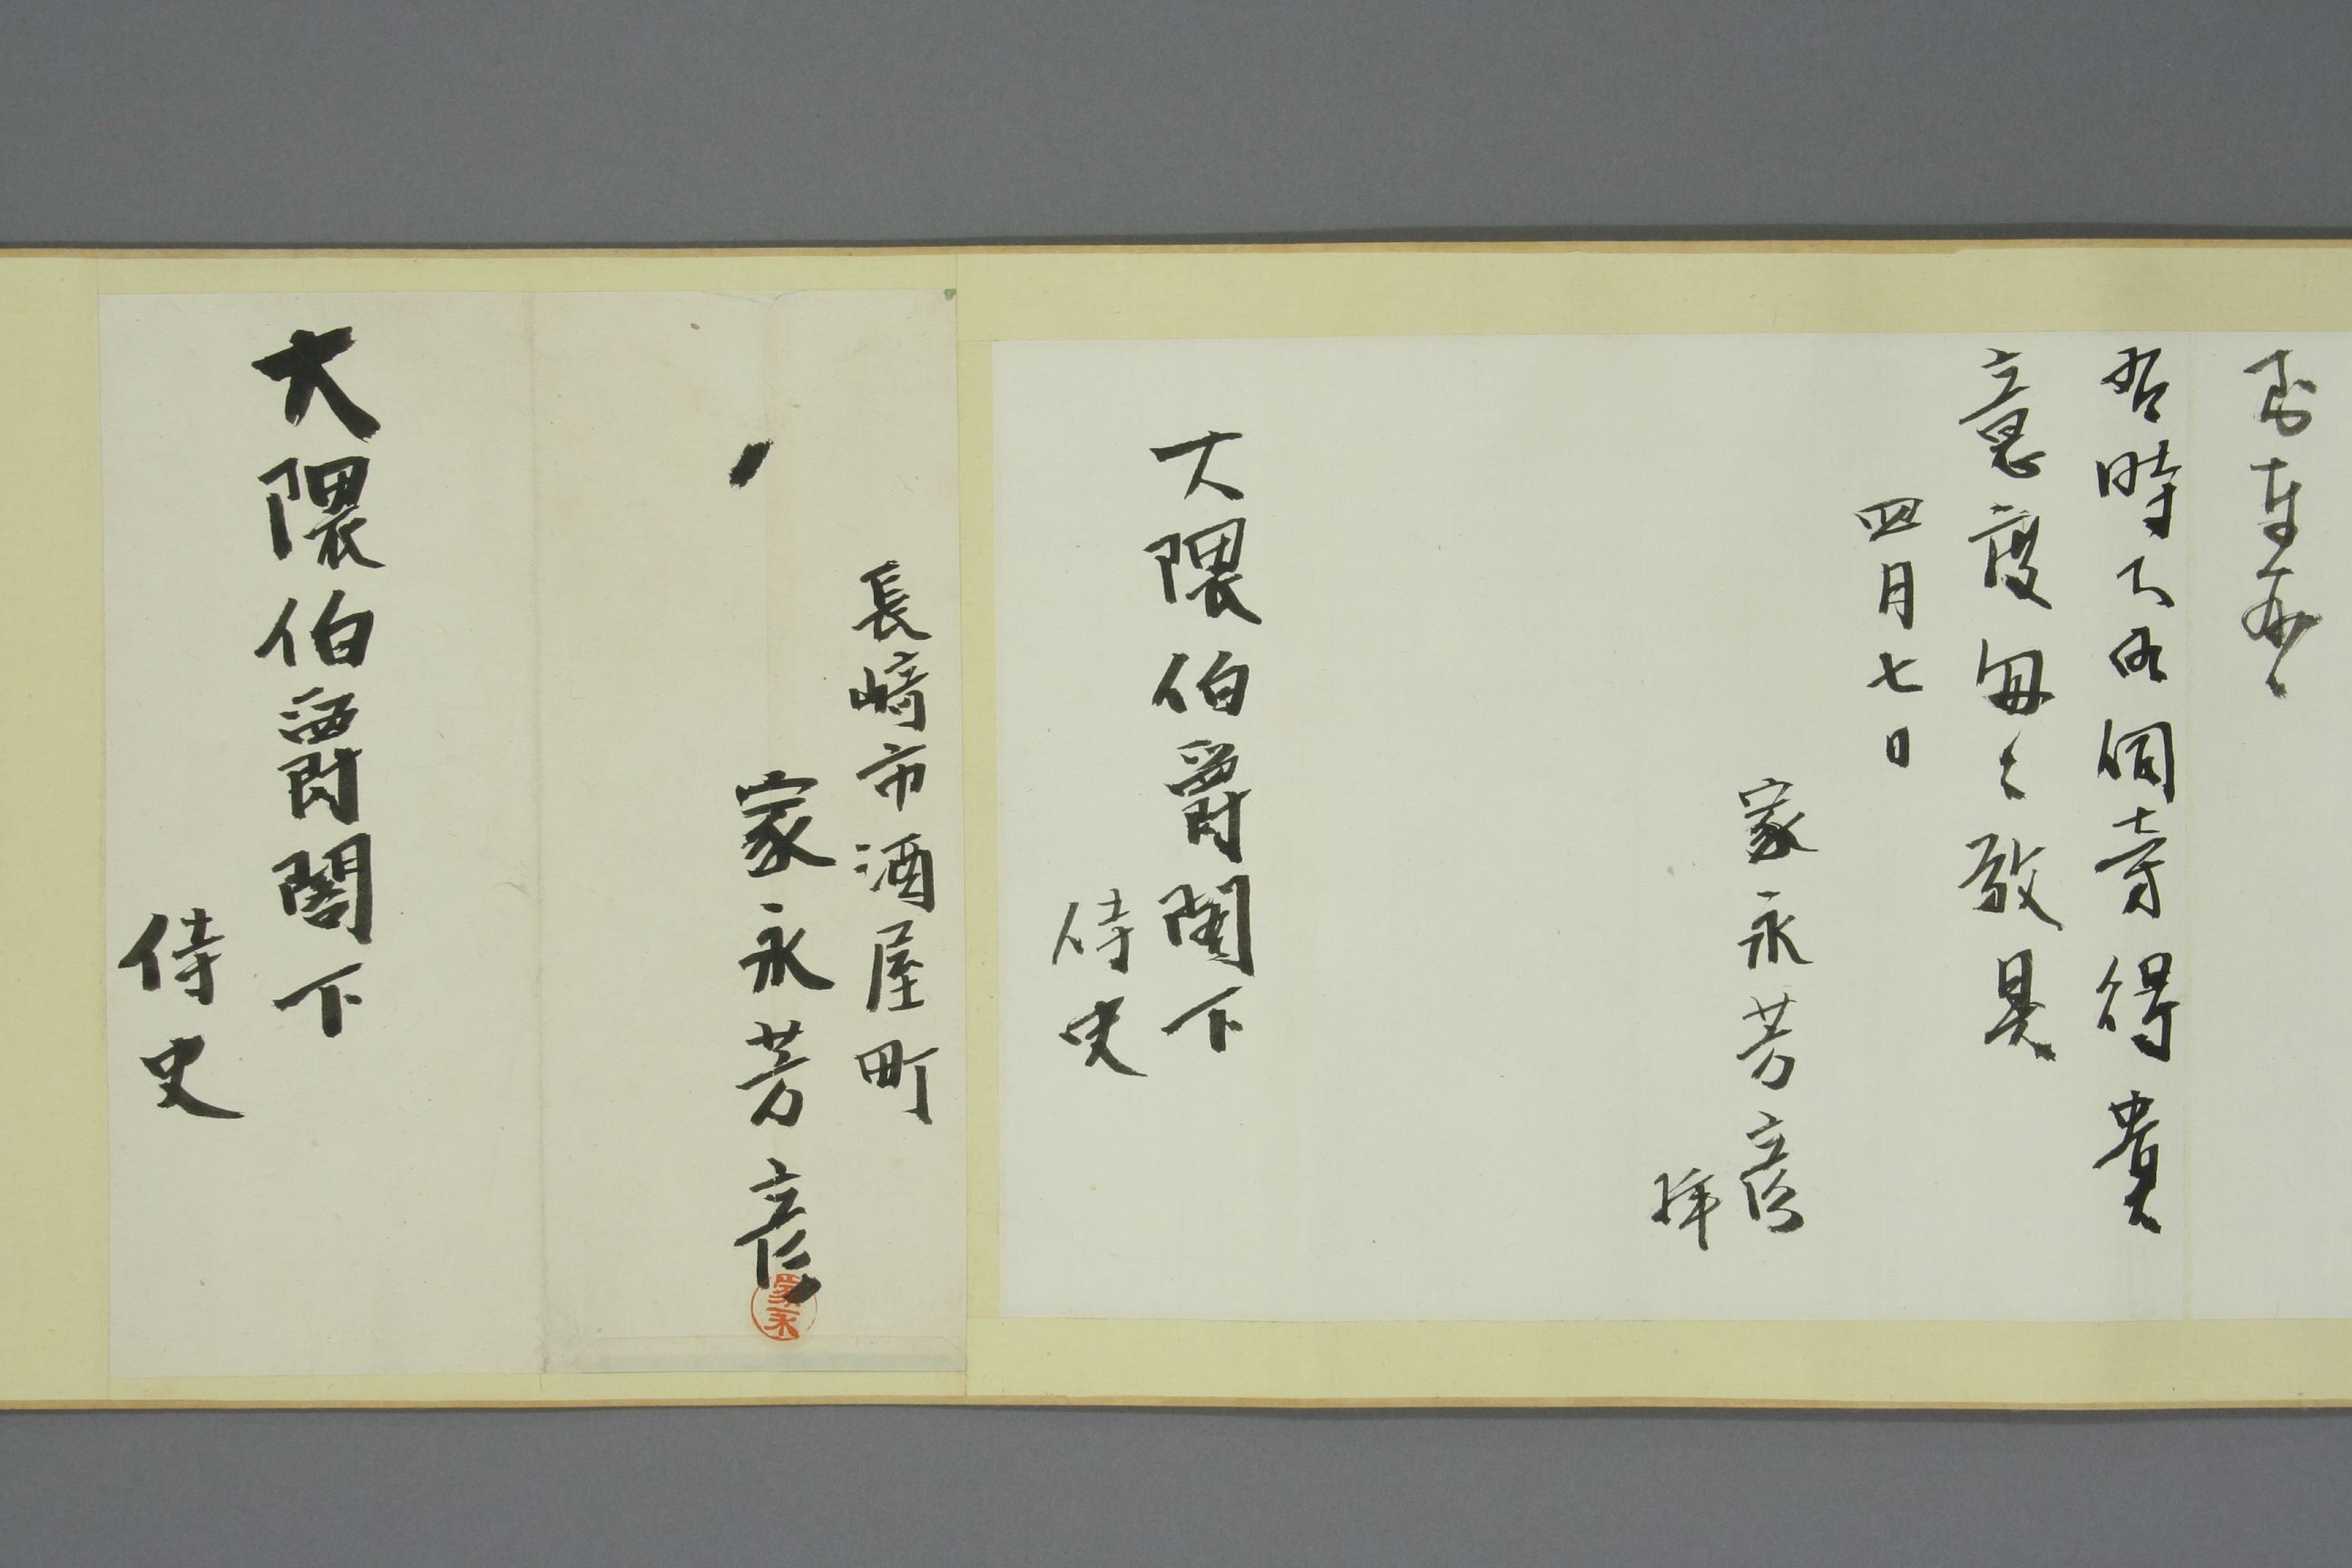 時
得貴
意度匆々敬具
四月七日
家永芳彦
拝
大隈伯爵閣下
侍史
長崎市酒屋町
家永芳彦
家永
大隈伯爵閣下
侍史